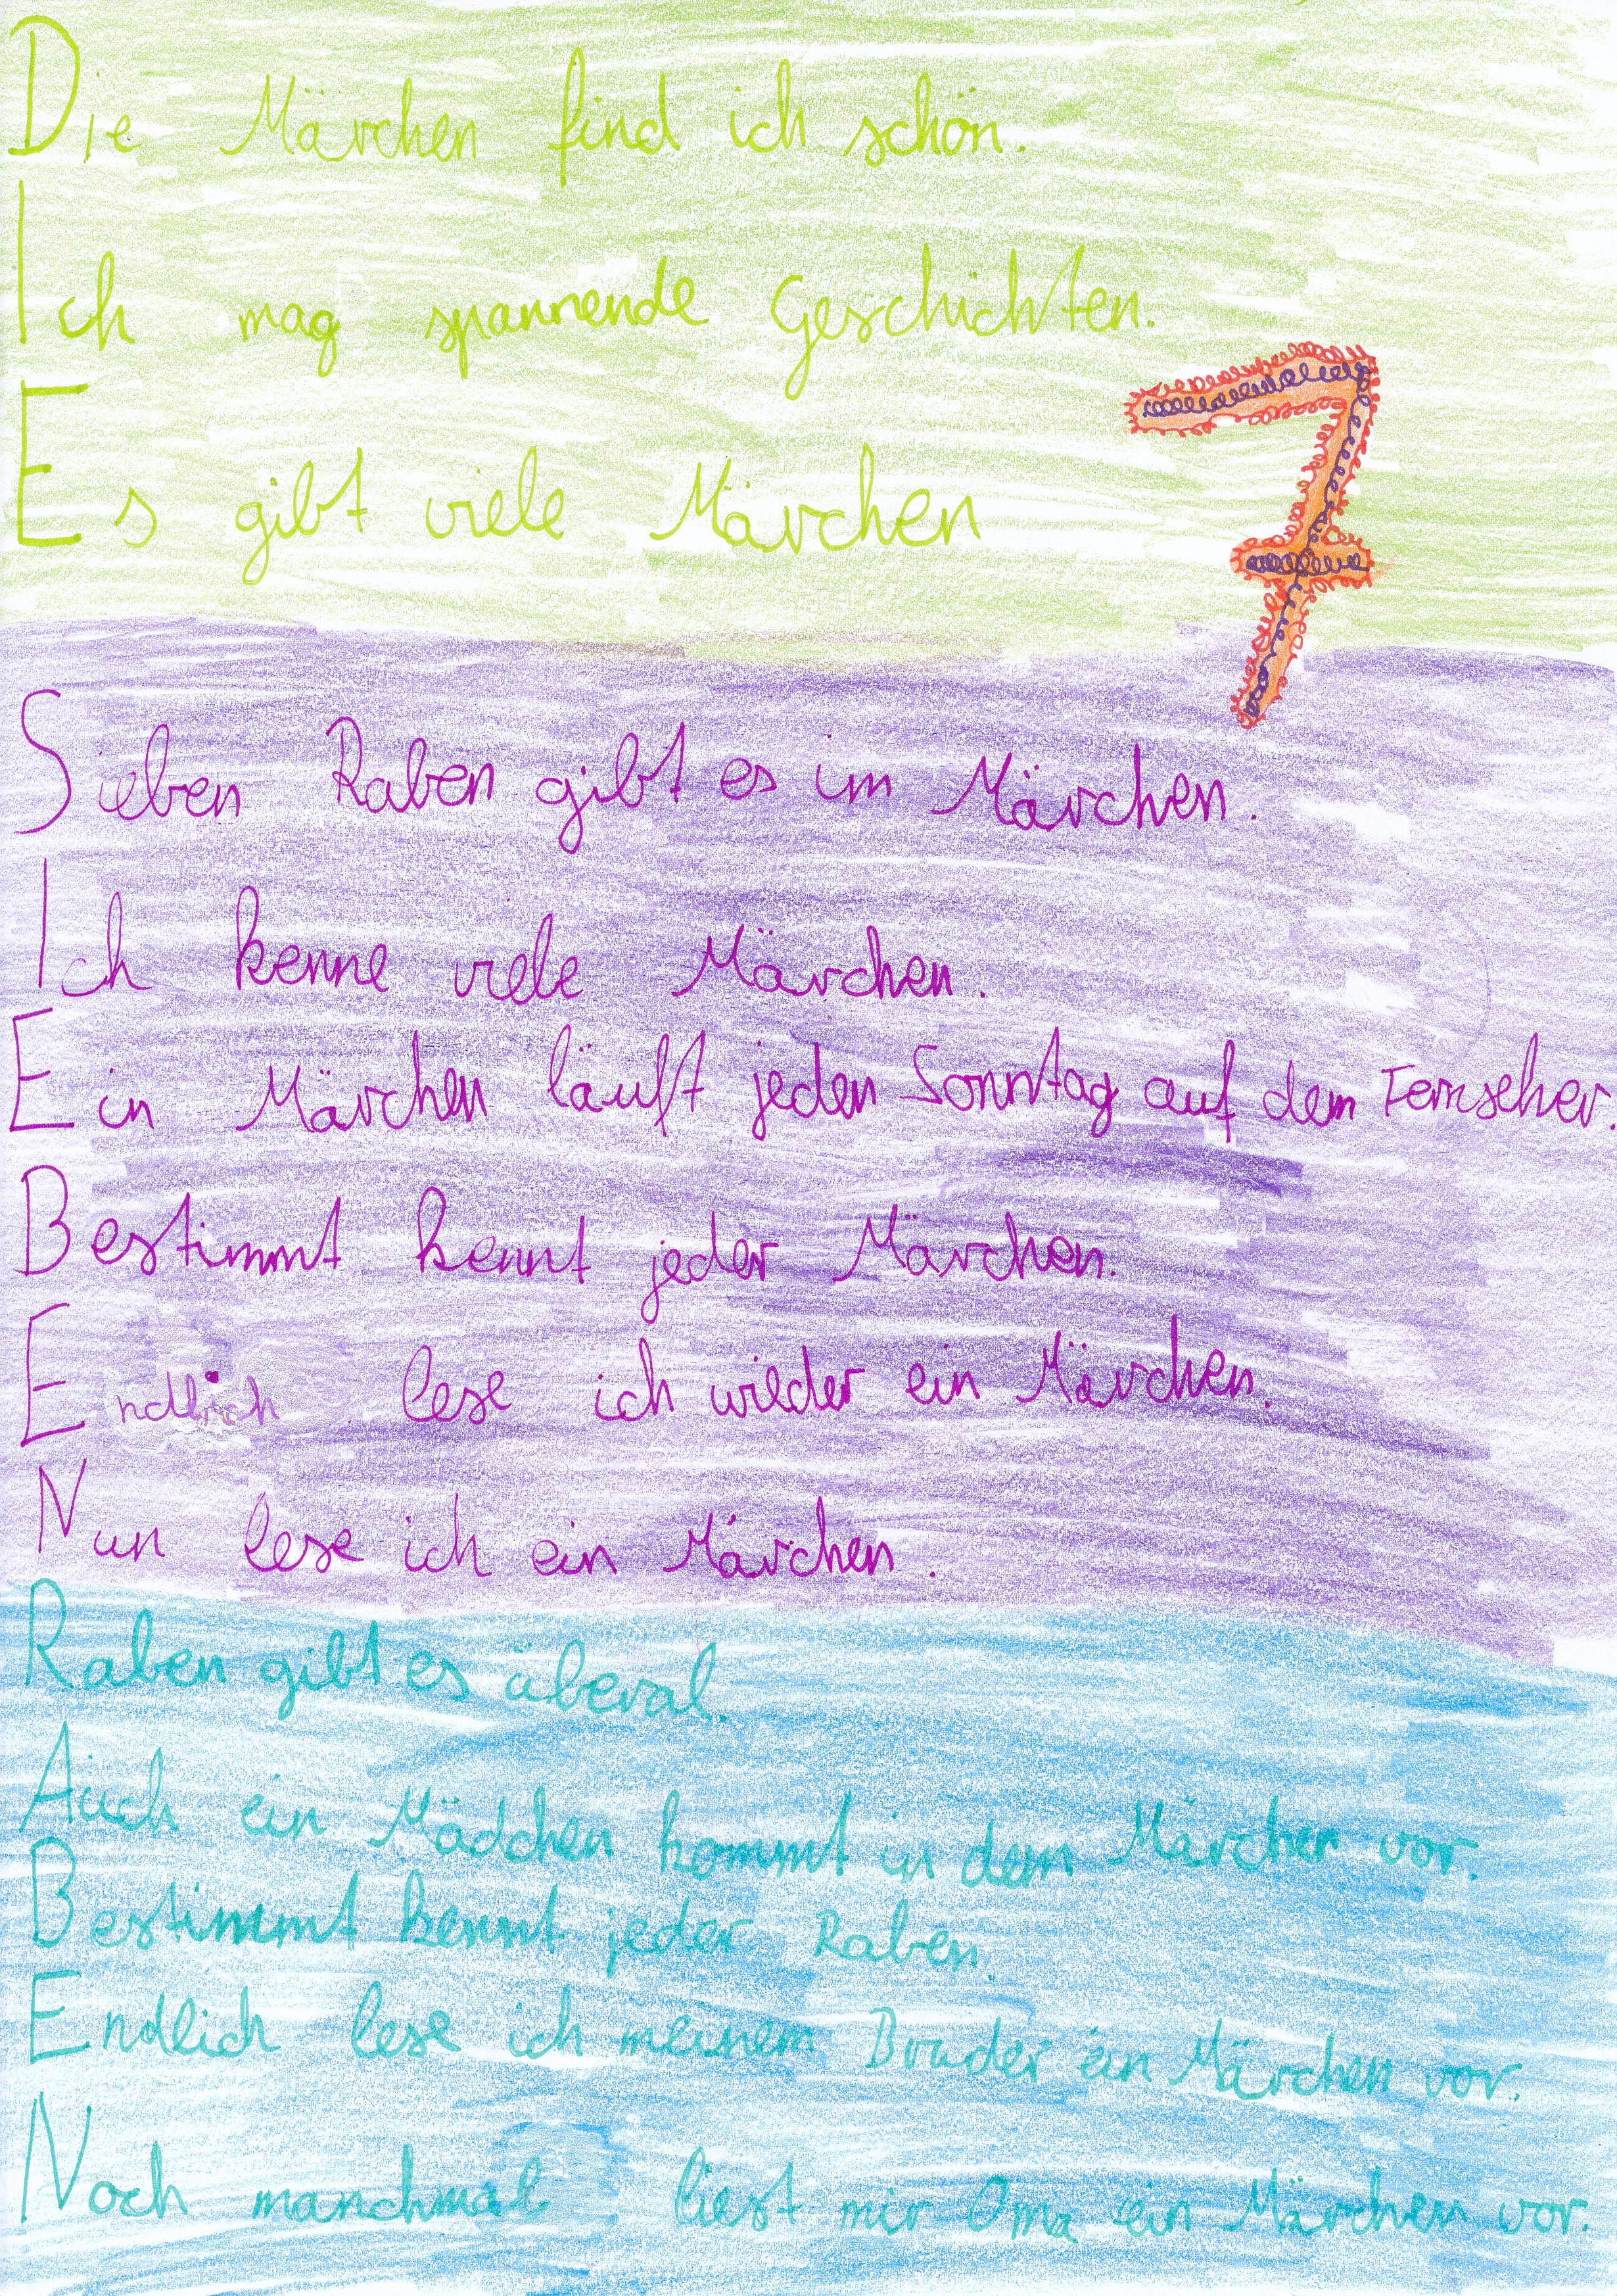 Die Märchen find ich schön.
Ich mag spannende Geschichten.
Es gibt viele Märchen
7
Sieben Raben gibt es im Märchen.
Ich kenne viele Märchen.
Ein Märchen läuft jeden Sonntag auf dem Fernseher.
Bestimmt kennt jeder Märchen.
Endlich lese ich wieder ein Märchen.
Nun lese ich ein Märchen.
Raben gibt es überal.
Auch ein Mädchen kommt in dem Märchen vor.
Bestimmt kennt jeder Raben.
Endlich lese ich meinem Bruder ein Märchen vor.
Noch manchmal liest mir Oma ein Märchen vor.